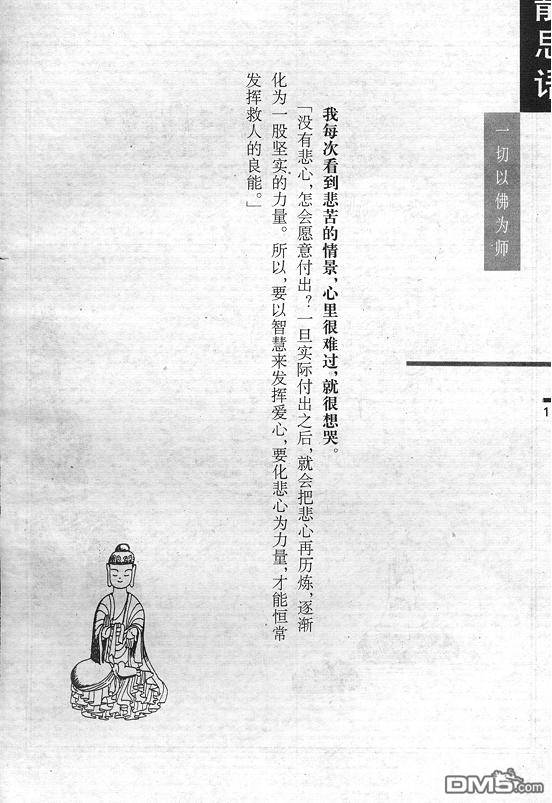 静思语
一切以佛为师
1
我每次看到悲苦的情景，心里很难过，就很想哭。
「没有悲心，怎会愿意付出？一旦实际付出之后，就会把悲心再历炼，逐渐
化为一股坚实的力量。所以，要以智慧来发挥爱心，要化悲心为力量，才能恒常
发挥救人的良能。」
DM5.com